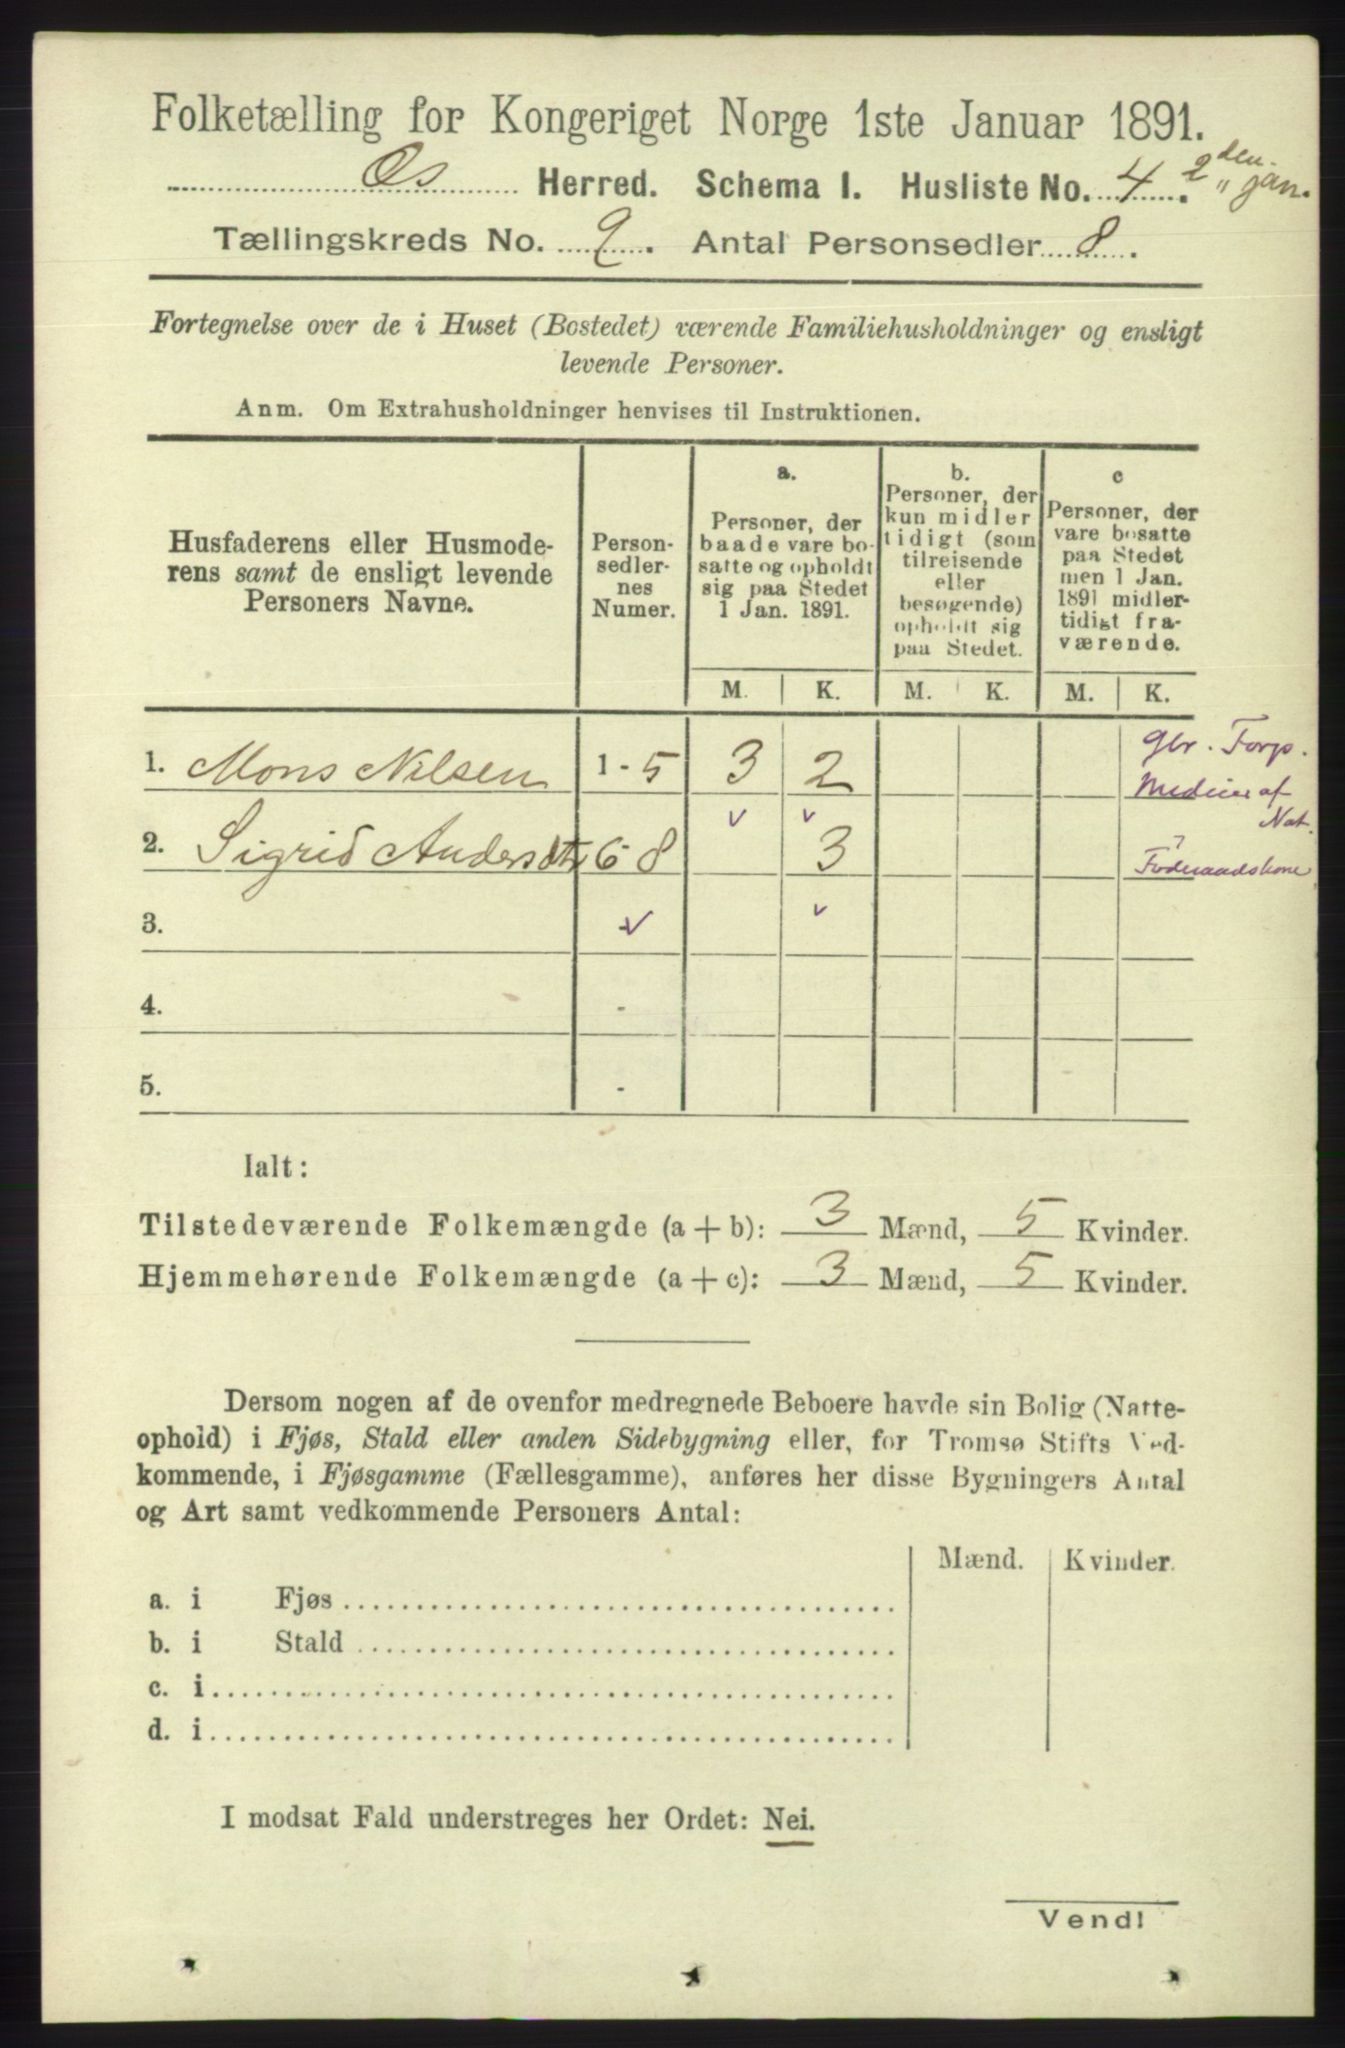 Folketælling for Kongeriget Norge 1ste Januar 1891.
Os Herred. Schema I. Husliste No. 4. 2den Jan.
Tællingskreds No. 9. Antal Personsedler 8.
Fortegnelse over de i Huset (Bostedet) værende Familiehusholdninger og ensligt
levende Personer.
Anm. Om Extrahusholdninger henvises til Instruktionen.
Husfaderens eller Husmode-
rens samt de ensligt levende
Personers Navne.
Person-
sedler-
nes
Numer.
a.
Personer, der
baade vare bo-
satte og opholdt
sig paa Stedet
1 Jan. 1891.
b.
Personer, der
kun midler
tidigt (som
tilreisende
eller
besøgende)
opholdt sig
paa Stedet.
c
Personer, der
vare bosatte
paa Stedet
men 1 Jan.
1891 midler-
tidigt fra-
værende.
M. K. M. K. M. K.
1. Mons Nilsen 1 - 5 3 2 Gbr. Forp.
af
Nat.
2. Sigrid Andersdtr 6 - 8 3 Føderaadskone
3.
4. -
5. -
Ialt:
Tilstedeværende Folkemængde (a + b): 3 Mænd, 5 Kvinder.
Hjemmehørende Folkemængde (a + c): 3 Mænd, 5 Kvinder.
Dersom nogen af de ovenfor medregnede Beboere havde sin Bolig (Natte-
ophold) i Fjøs, Stald eller anden Sidebygning eller, for Tromsø Stifts Ved-
kommende, i Fjøsgamme (Fællesgamme), anføres her disse Bygningers Antal
og Art samt vedkommende Personers Antal:
Mænd. Kvinder.
a. i Fjøs
b. i Stald
c. i
d. i
I modsat Fald understreges her Ordet: Nei.
Vend!